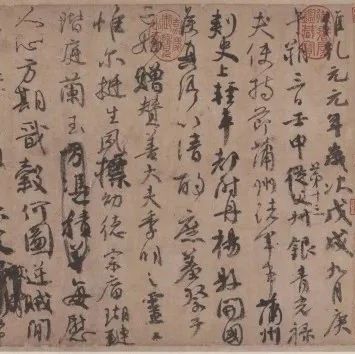 維乾元元年歲次戊戌九月庚
午朔三日壬申第十三叔銀青光祿
夫使持節蒲州諸軍事蒲州
刺史上輕車都尉丹楊縣開國
侯真卿以清酌庶羞祭于
亡姪贈贊善大夫季明之靈曰
惟爾挺生夙標幼德宗廟瑚璉
階庭蘭玉方憑積善每慰
人心方期戩穀何圖逆賊閒